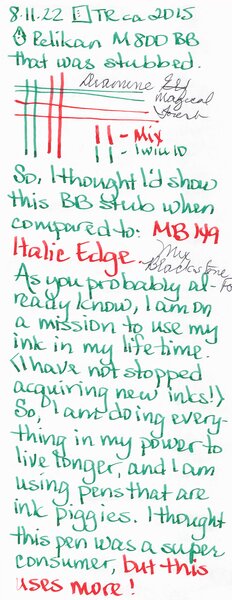 8.11.22 TR ca 2015
Pelikan M800 BB
that was stubbed.
Diamine
Magical
Forest
11 - Mix
11 - 1 win 10
So, I thought I'd show
this BB stub when
compared to: MB 149
Italic Edge. Mix
Blackstone
As you probably al-
ready know, I am on
a mission to use my
ink in my lifetime.
<I have not stopped
acquiring new inks!>
So, I am doing every-
thing in my power to
live longer, and I am
using pens that are
ink piggies. I thought
this pen was a super
consumer, but this
uses more!